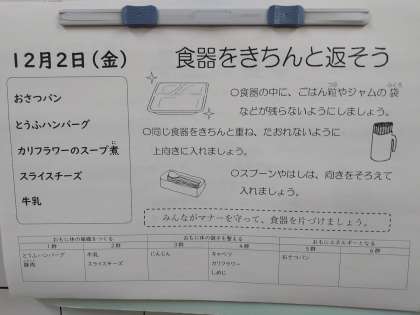 12月2日(金)
食器をきちんと返そう
おさつパン
とうふハンバーグ
カリフラワーのスープ煮
スライスチーズ
牛乳
○食器の中に、ごはん粒やジャムの袋
などが残らないようにしましょう。
○同じ食器をきちんと重ね、たおれないように
上向きに入れましょう。
○スプーンやはしは、向きをそろえて
入れましょう。
みんながマナーを守って、食器を片づけましょう。
おもに体の組織をつくる
おもに体の調子を整える
おもにエネルギーとなる
1群 2群 3群 4群 5群 6群
とうふハンバーグ 牛乳 にんじん キャベツ おさつパン
豚肉 スライスチーズ カリフラワー
しめじ